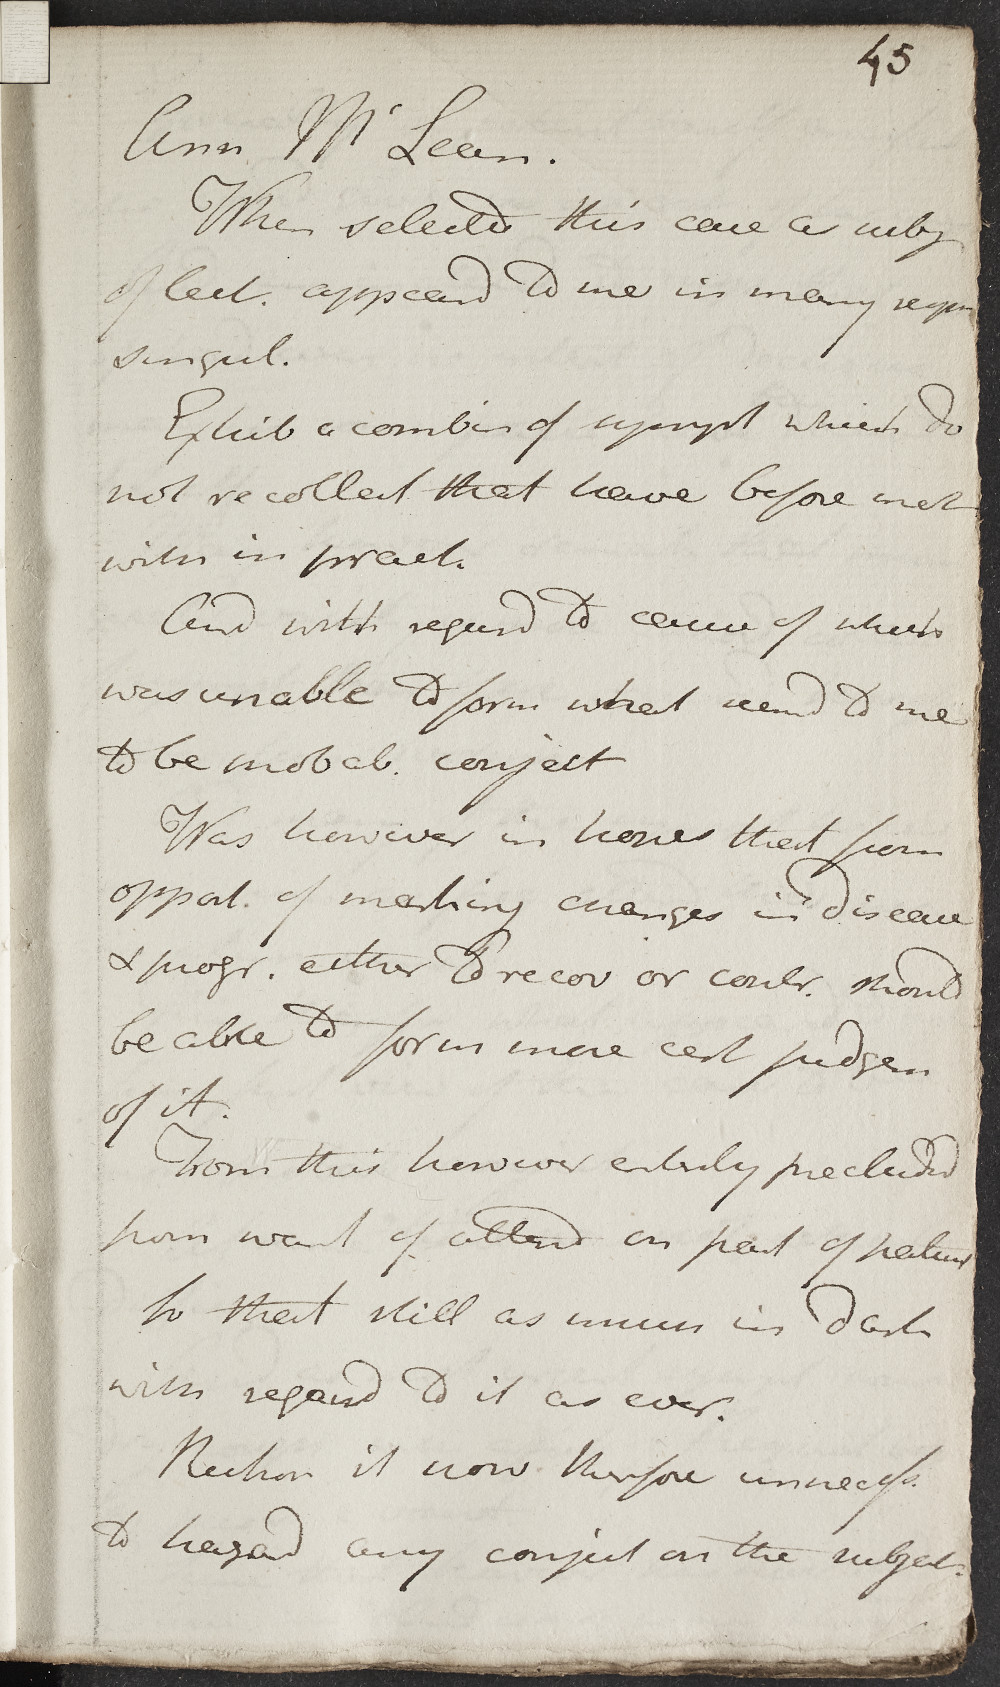 45
Ann McLean.
When selected this case as subj
of lect. appeard to me in many resp
singul.
Exhib a combin of sympt which do
not recollect that have before met
with in pract.
And with regard to cause of which
was unable to form what seemd to me
to be probab. conject
Was however in hopes that from
opport. of marking changes in disease
& progr. either to recov or contr. should
be able to form more cert judgem
of it.
From this however entirely precluded
from want of attend on part of patient
So that still as much in dark
with regard to it as ever.
Reckon it now therefore unnecess.
to hazard any conject on the subject.